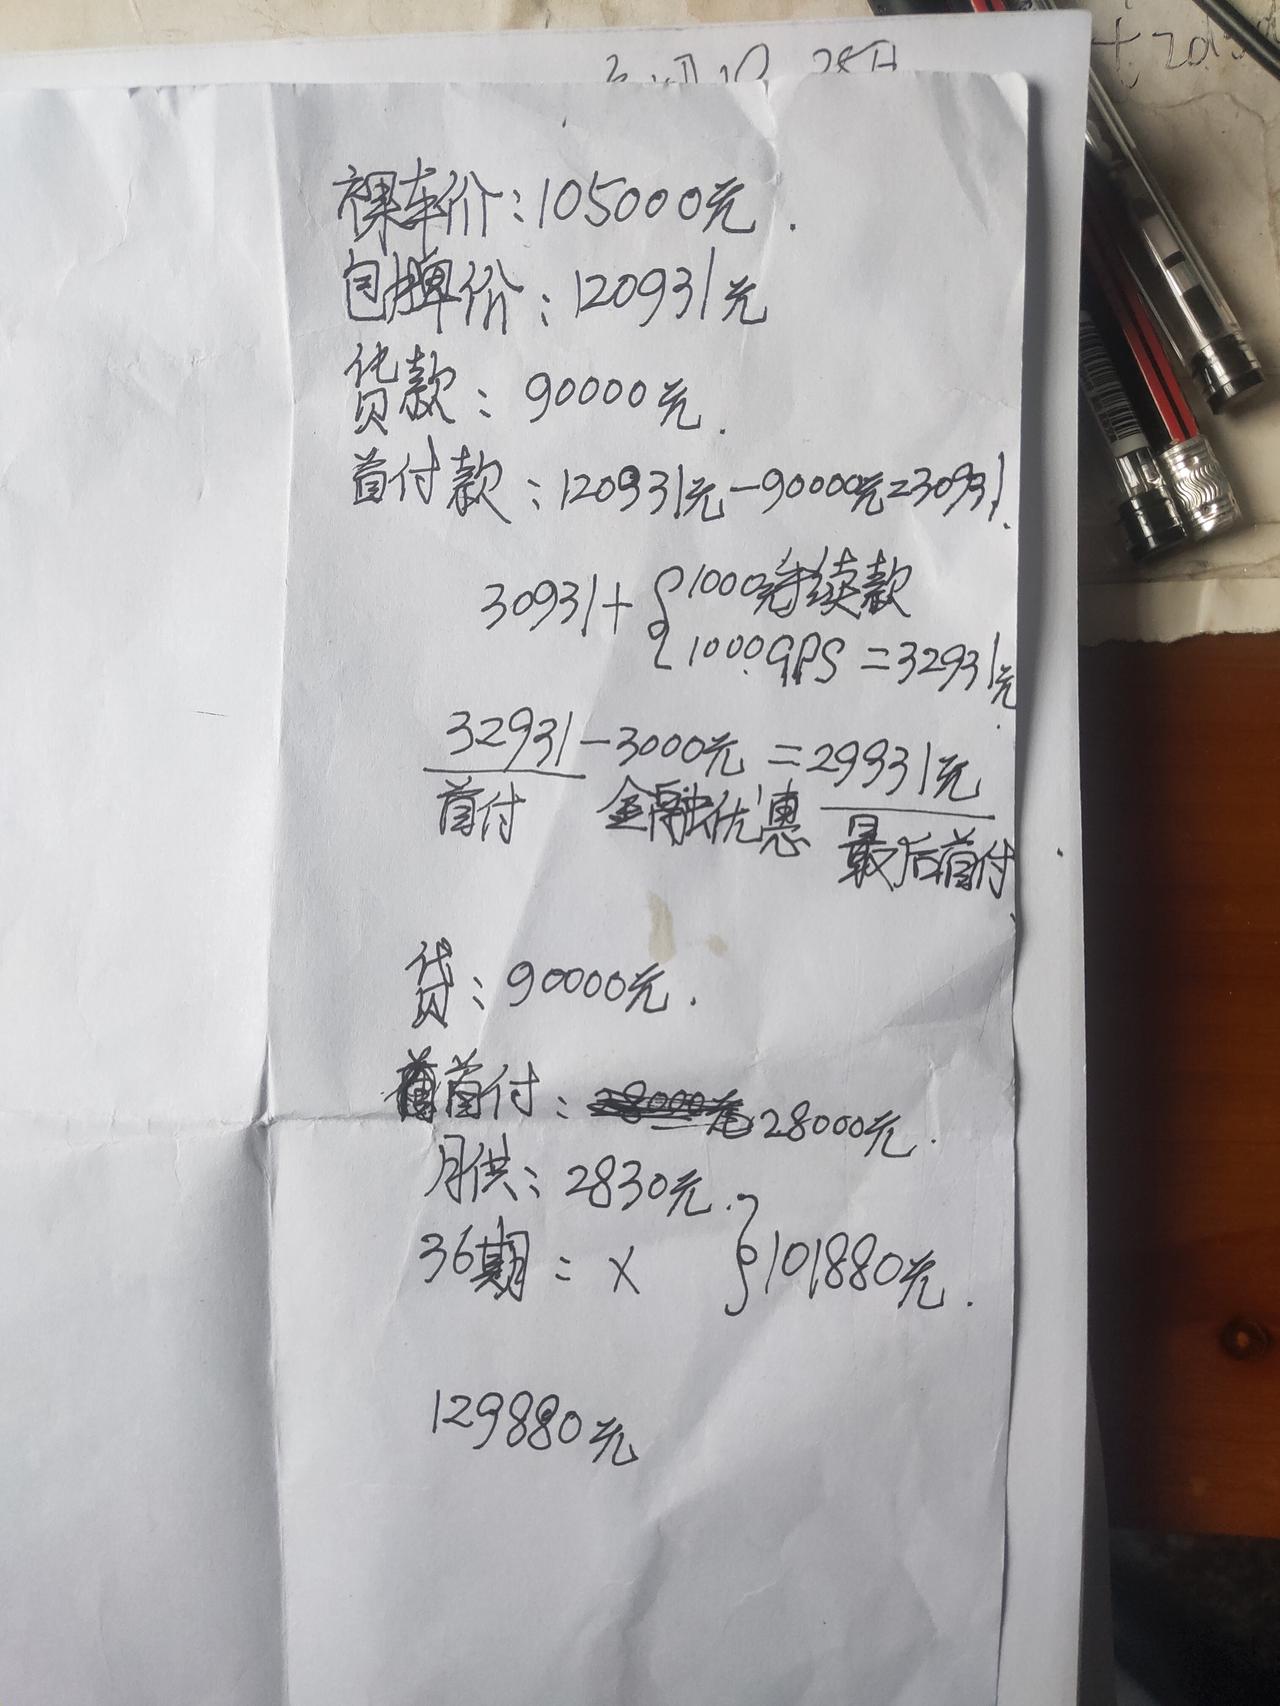 28日
裸车价：105000元.
包牌价：120931元
贷款：90000元.
首付款：120931元-90000元=30931.
30931+{1000元手续款
1000GPS=32931元.
32931-3000元=29931元
首付 金融优惠 最后首付.
贷：90000元.
首付：28000元.
月供：2830元.
36期：X }101880元.
129880元